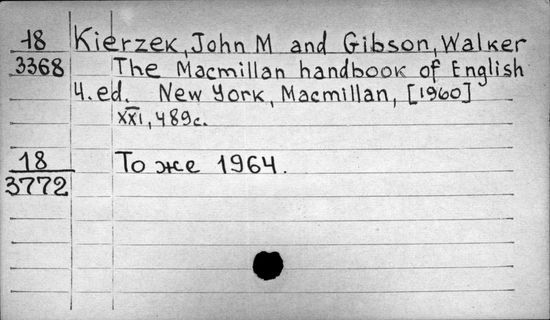 18 Kierzek, John M and Gibson, Walker
3368 The Macmillan handbook of English
4. ed. New York, Macmillan, [1960]
XXI, 489с.
18 То же 1964.
3772